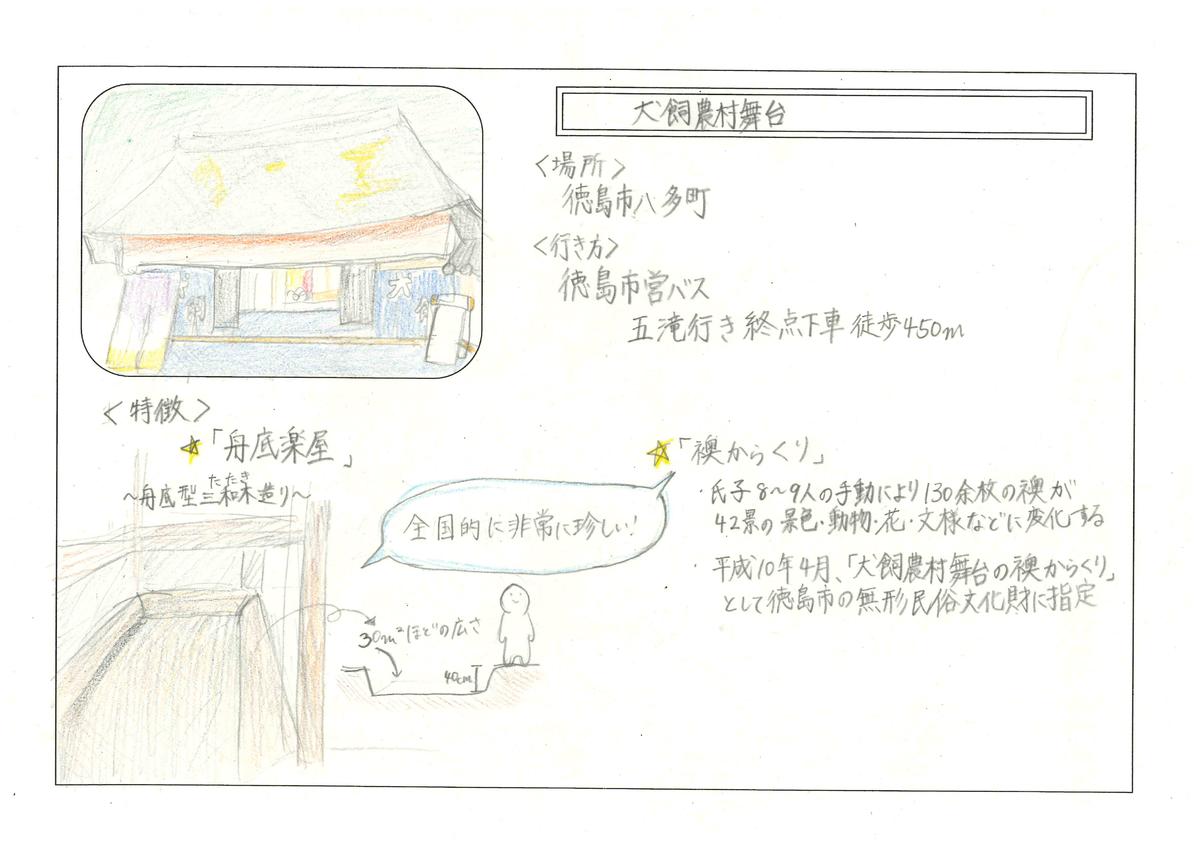 犬飼農村舞台
<場所>
徳島市八多町
<行き方>
徳島市営バス
五滝行き終点下車 徒歩450m
<特徴>
☆「舟底楽屋」
たたき
~舟底型三和木造り~
全国的に非常に珍しい!
30m²ほどの広さ
40cm
☆「襖からくり」
・氏子8~9人の手動により130余枚の襖が
42景の景色・動物・花・文様などに変化する
・平成10年4月、「犬飼農村舞台の襖からくり」
として徳島市の無形民俗文化財に指定